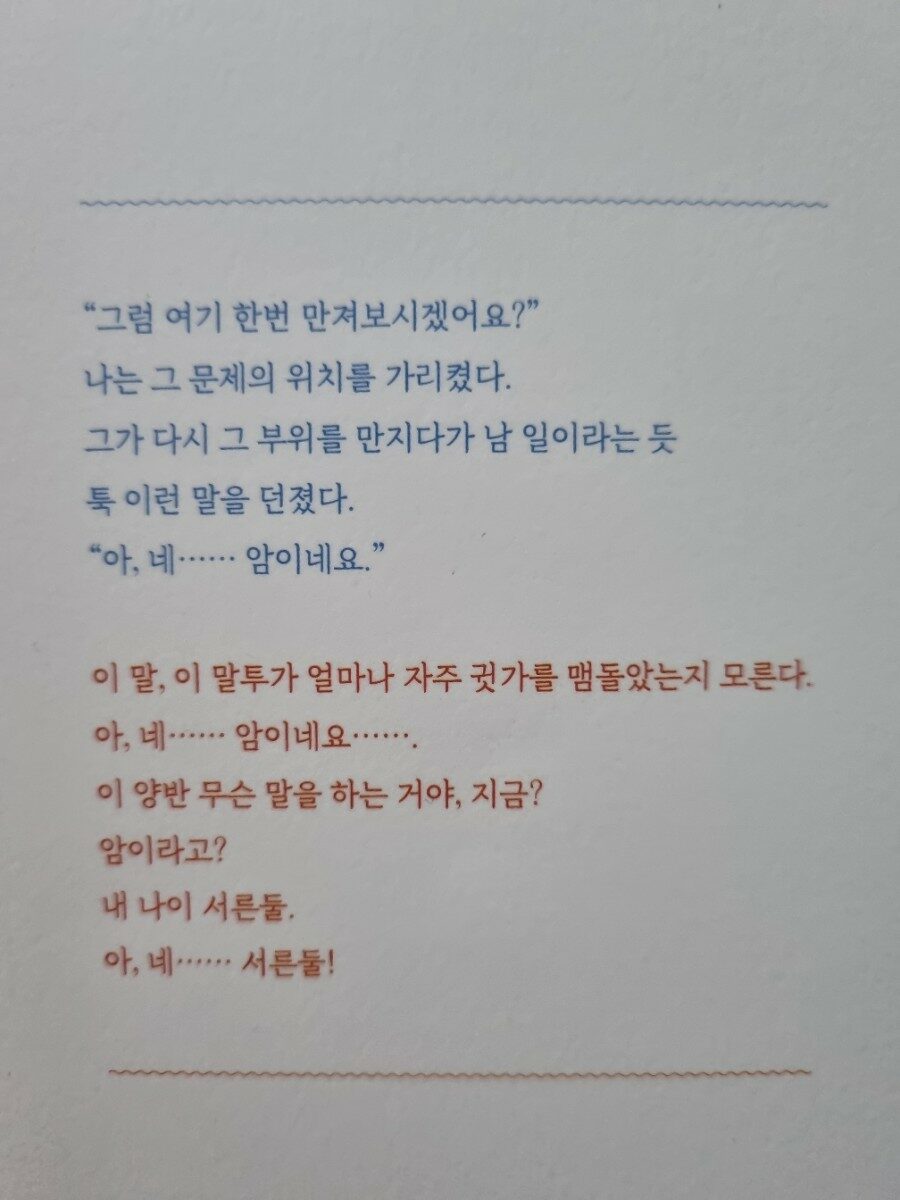 “그럼 여기 한번 만져보시겠어요?”
나는 그 문제의 위치를 가리켰다.
그가 다시 그 부위를 만지다가 남 일이라는 듯
툭 이런 말을 던졌다.
“아, 네…… 암이네요.”
이 말, 이 말투가 얼마나 자주 귓가를 맴돌았는지 모른다.
아, 네…… 암이네요…….
이 양반 무슨 말을 하는 거야, 지금?
암이라고?
내 나이 서른둘.
아, 네…… 서른둘!